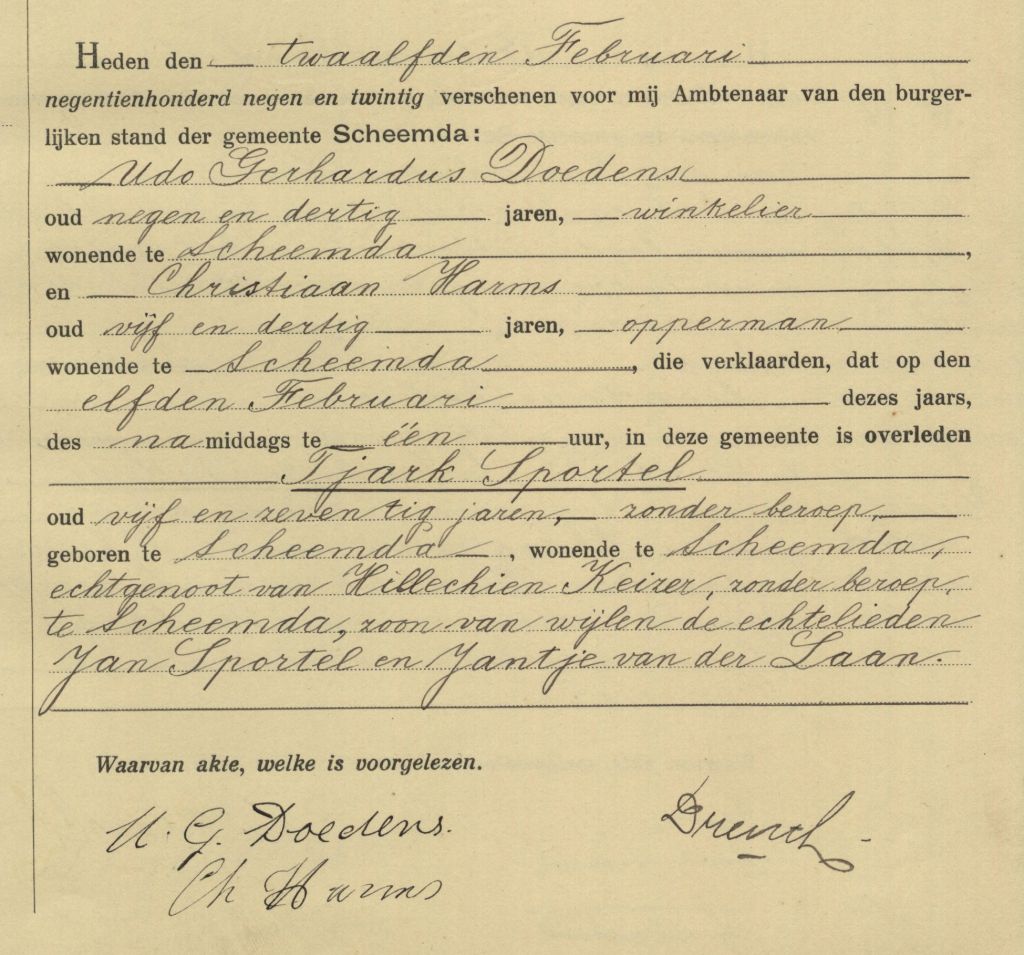 Heden den twaalfden Februari
negentienhonderd negen en twintig verschenen voor mij Ambtenaar van den burger-
lijken stand der gemeente Scheemda:
Udo Gerhardus Doedens
oud negen en dertig jaren, winkelier
wonende te Scheemda,
en Christiaan Harms
oud vijf en dertig jaren, opperman
wonende te Scheemda, die verklaarden, dat op den
elfden Februari dezes jaars,
des na middags te één uur, in deze gemeente is overleden
Tjark Sportel
oud vijf en zeventig jaren, zonder beroep,
geboren te Scheemda, wonende te Scheemda,
echtgenoot van Hillechien Keizer, zonder beroep,
te Scheemda, zoon van wijlen de echtelieden
Jan Sportel en Jantje van der Laan.
Waarvan akte, welke is voorgelezen.
U. G. Doedens.
Ch Harms